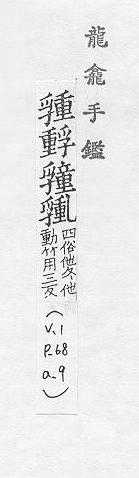 龍龕手鑑
四俗他冬他
動竹用三反
(V.1
P.68
a.9)